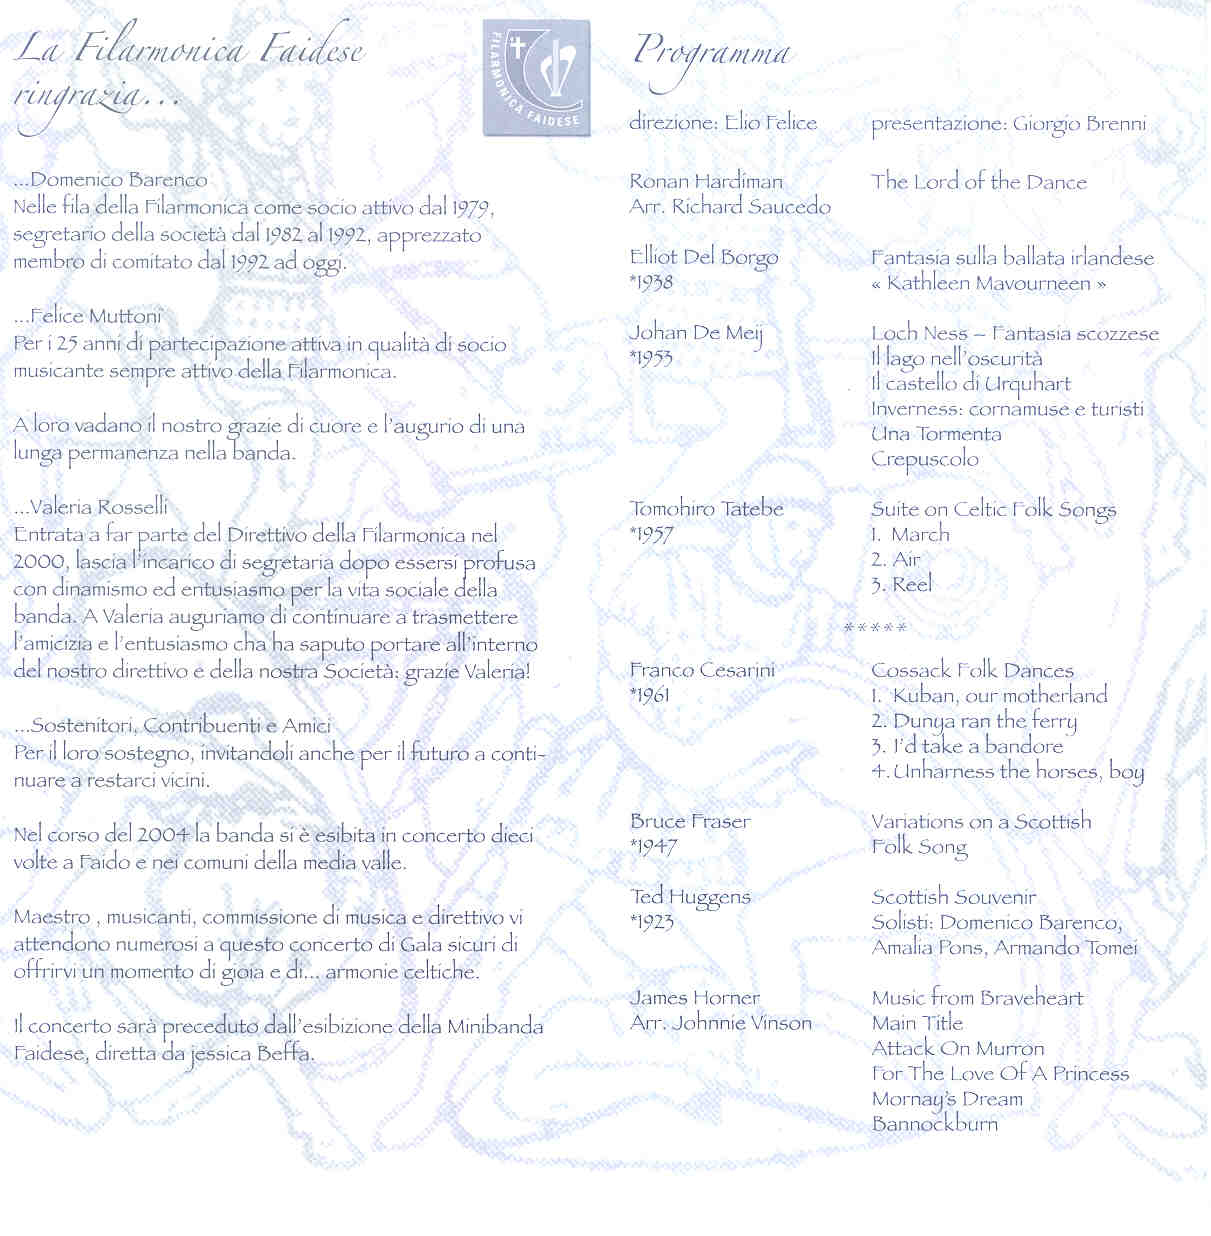 La Filarmonica Faidese
ringrazia...
FILARMONICA FAIDESE
...Domenico Barenco
Nelle fila della Filarmonica come socio attivo dal 1979,
segretario della società dal 1982 al 1992, apprezzato
membro di comitato dal 1992 ad oggi.
...Felice Muttoni
Per i 25 anni di partecipazione attiva in qualità di socio
musicante sempre attivo della Filarmonica.
A loro vadano il nostro grazie di cuore e l'augurio di una
lunga permanenza nella banda.
...Valeria Rosselli
Entrata a far parte del Direttivo della Filarmonica nel
2000, lascia l'incarico di segretaria dopo essersi profusa
con dinamismo ed entusiasmo per la vita sociale della
banda. A Valeria auguriamo di continuare a trasmettere
l'amicizia e l'entusiasmo cha ha saputo portare all'interno
del nostro direttivo e della nostra Società: grazie Valeria!
...Sostenitori, Contribuenti e Amici
Per il loro sostegno, invitandoli anche per il futuro a conti-
nuare a restarci vicini.
Nel corso del 2004 la banda si è esibita in concerto dieci
volte a Faido e nei comuni della media valle.
Maestro , musicanti, commissione di musica e direttivo vi
attendono numerosi a questo concerto di Gala sicuri di
offrirvi un momento di gioia e di... armonie celtiche.
Il concerto sarà preceduto dall'esibizione della Minibanda
Faidese, diretta da jessica Beffa.
Programma
direzione: Elio Felice presentazione: Giorgio Brenni
Ronan Hardiman The Lord of the Dance
Arr. Richard Saucedo
Elliot Del Borgo Fantasia sulla ballata irlandese
*1938 « Kathleen Mavourneen »
Johan De Meij Loch Ness – Fantasia scozzese
*1953 Il lago nell'oscurità
Il castello di Urquhart
Inverness: cornamuse e turisti
Una Tormenta
Crepuscolo
Tomohiro Tatebe Suite on Celtic Folk Songs
*1957 1. March
2. Air
3. Reel
*****
Franco Cesarini Cossack Folk Dances
*1961 1. Kuban, our motherland
2. Dunya ran the ferry
3. I'd take a bandore
4. Unharness the horses, boy
Bruce Fraser Variations on a Scottish
*1947 Folk Song
Ted Huggens Scottish Souvenir
*1923 Solisti: Domenico Barenco,
Amalia Pons, Armando Tomei
James Horner Music from Braveheart
Arr. Johnnie Vinson Main Title
Attack On Murron
For The Love Of A Princess
Mornay's Dream
Bannockburn